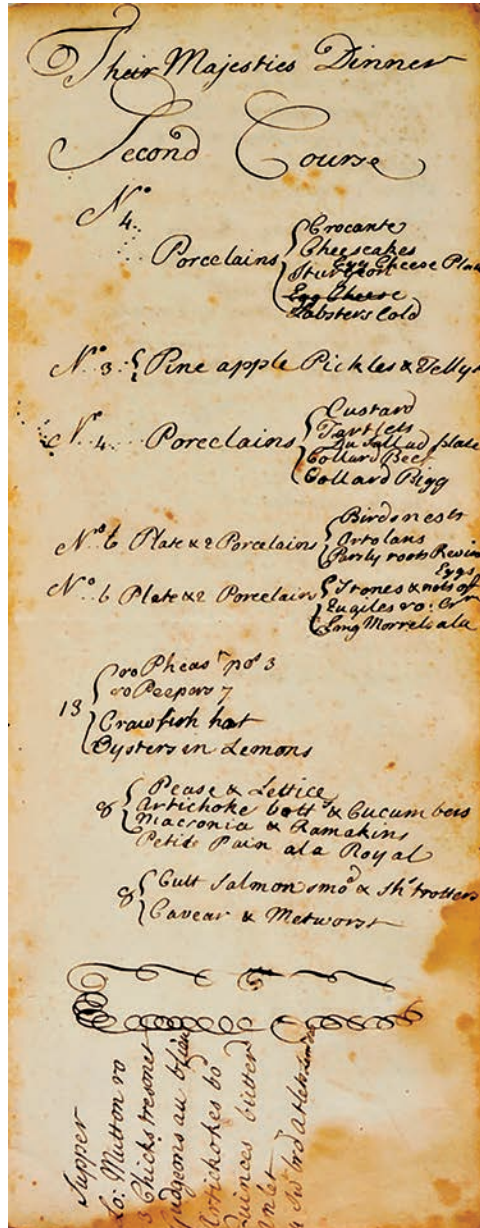 Their Majesties Dinner
Second Course
No 4.
Porcelains
Crocante
Cheesecakes
Egg Cheese Plate
Sturgeon
Egg Cheese
Lobsters Cold
No 3. Pine apple Pickles & Jellys
No 4 Porcelains
Custard
Tartlets
Sallad plate
Collard Beef
Collard Pigg
No 6 Plate & 2 Porcelains
Birds nests
Ortolans
Parsly roots
Eggs
No 6 Plate & 2 Porcelains
Stones &
Long Morrels ala
13
ro Pheast po: 3
ro Peepers 7
Crawfish hot
Oysters in Lemons
8
Pease & Lettice
Artichoke botts & Cucumbers
Macronia & Ramakins
Petide Pain ala Royal
8
Cult Salmon smod & Shs trotters
Cavear & Metworst
Supper
Lo: Mutton ro
3 Chicks
Gudgeons au
Artichokes bo
Quinces butter